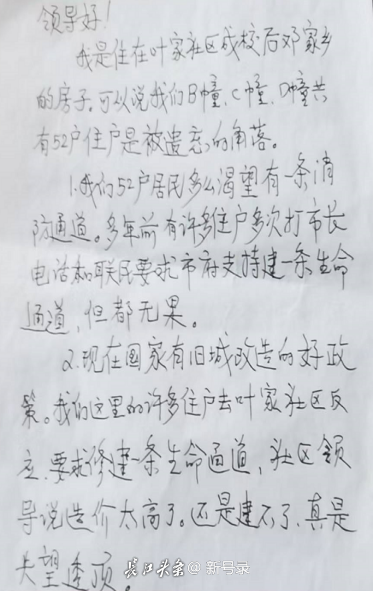 领导好！
我是住在叶家社区成校后邓家乡
的房子，可以说我们B幢、C幢、D幢共
有52户住户是被遗忘的角落。
1.我们52户居民多么渴望有一条消
防通道。多年前有许多住户多次打市长
电话和联民要求市府支持建一条生命
通道，但都无果。
2.现在国家有旧城改造的好政
策。我们这里的许多住户去叶家社区反
应，要求修建一条生命通道，社区领
导说造价太高了。还是建不了，真是
失望透顶。
长江头条@新号录